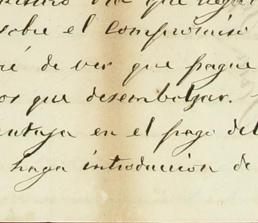 que
sobre el compromiso
de ver que pague
os que desembolsar.
entaja en el pago del
haga introduccion de